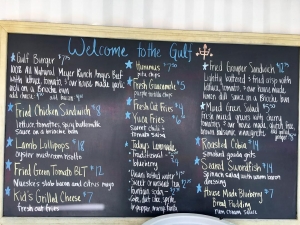 Welcome to the Gulf
Gulf Burger $
100% All Natural Meyer Ranch Angus Beef
with lettuce, tomato, & our house made garlic
aioli on a Brioche bun
add cheese add bacon
Fried Chicken Sandwich $12
lettuce, tomatoes, spicy buttermilk
sauce on a brioche bun
Lamb Lollipops $18
oyster mushroom risotto
Fried Green Tomato BLT $12
Nueske's bacon and citrus mayo
Kid's Grilled Cheese $7
fresh cut fries
Hummus $7
pita chips
Fresh Guacamole $5
tortilla chips
Fresh Cut Fries $4
Yuca Fries $6
sweet chili &
tomato sauce
Today's Lemonade
Traditional
blueberry
bottled water $
sweet or unsweet tea $
Coke, diet Coke, sprite
Fried Grouper Sandwich $12
Lightly battered & fried crisp with
lettuce, tomato, & our house made
sauce on a Brioche bun
Mixed Green Salad $5
mixed greens with cherry
tomatoes & our house made
balsamic vinaigrette
Roasted Cobia $14
smoked gouda grits
Seared Swordfish $14
spinach salad with warm bacon
dressing
House Made Blueberry $7
Bread Pudding
rum cream sauce